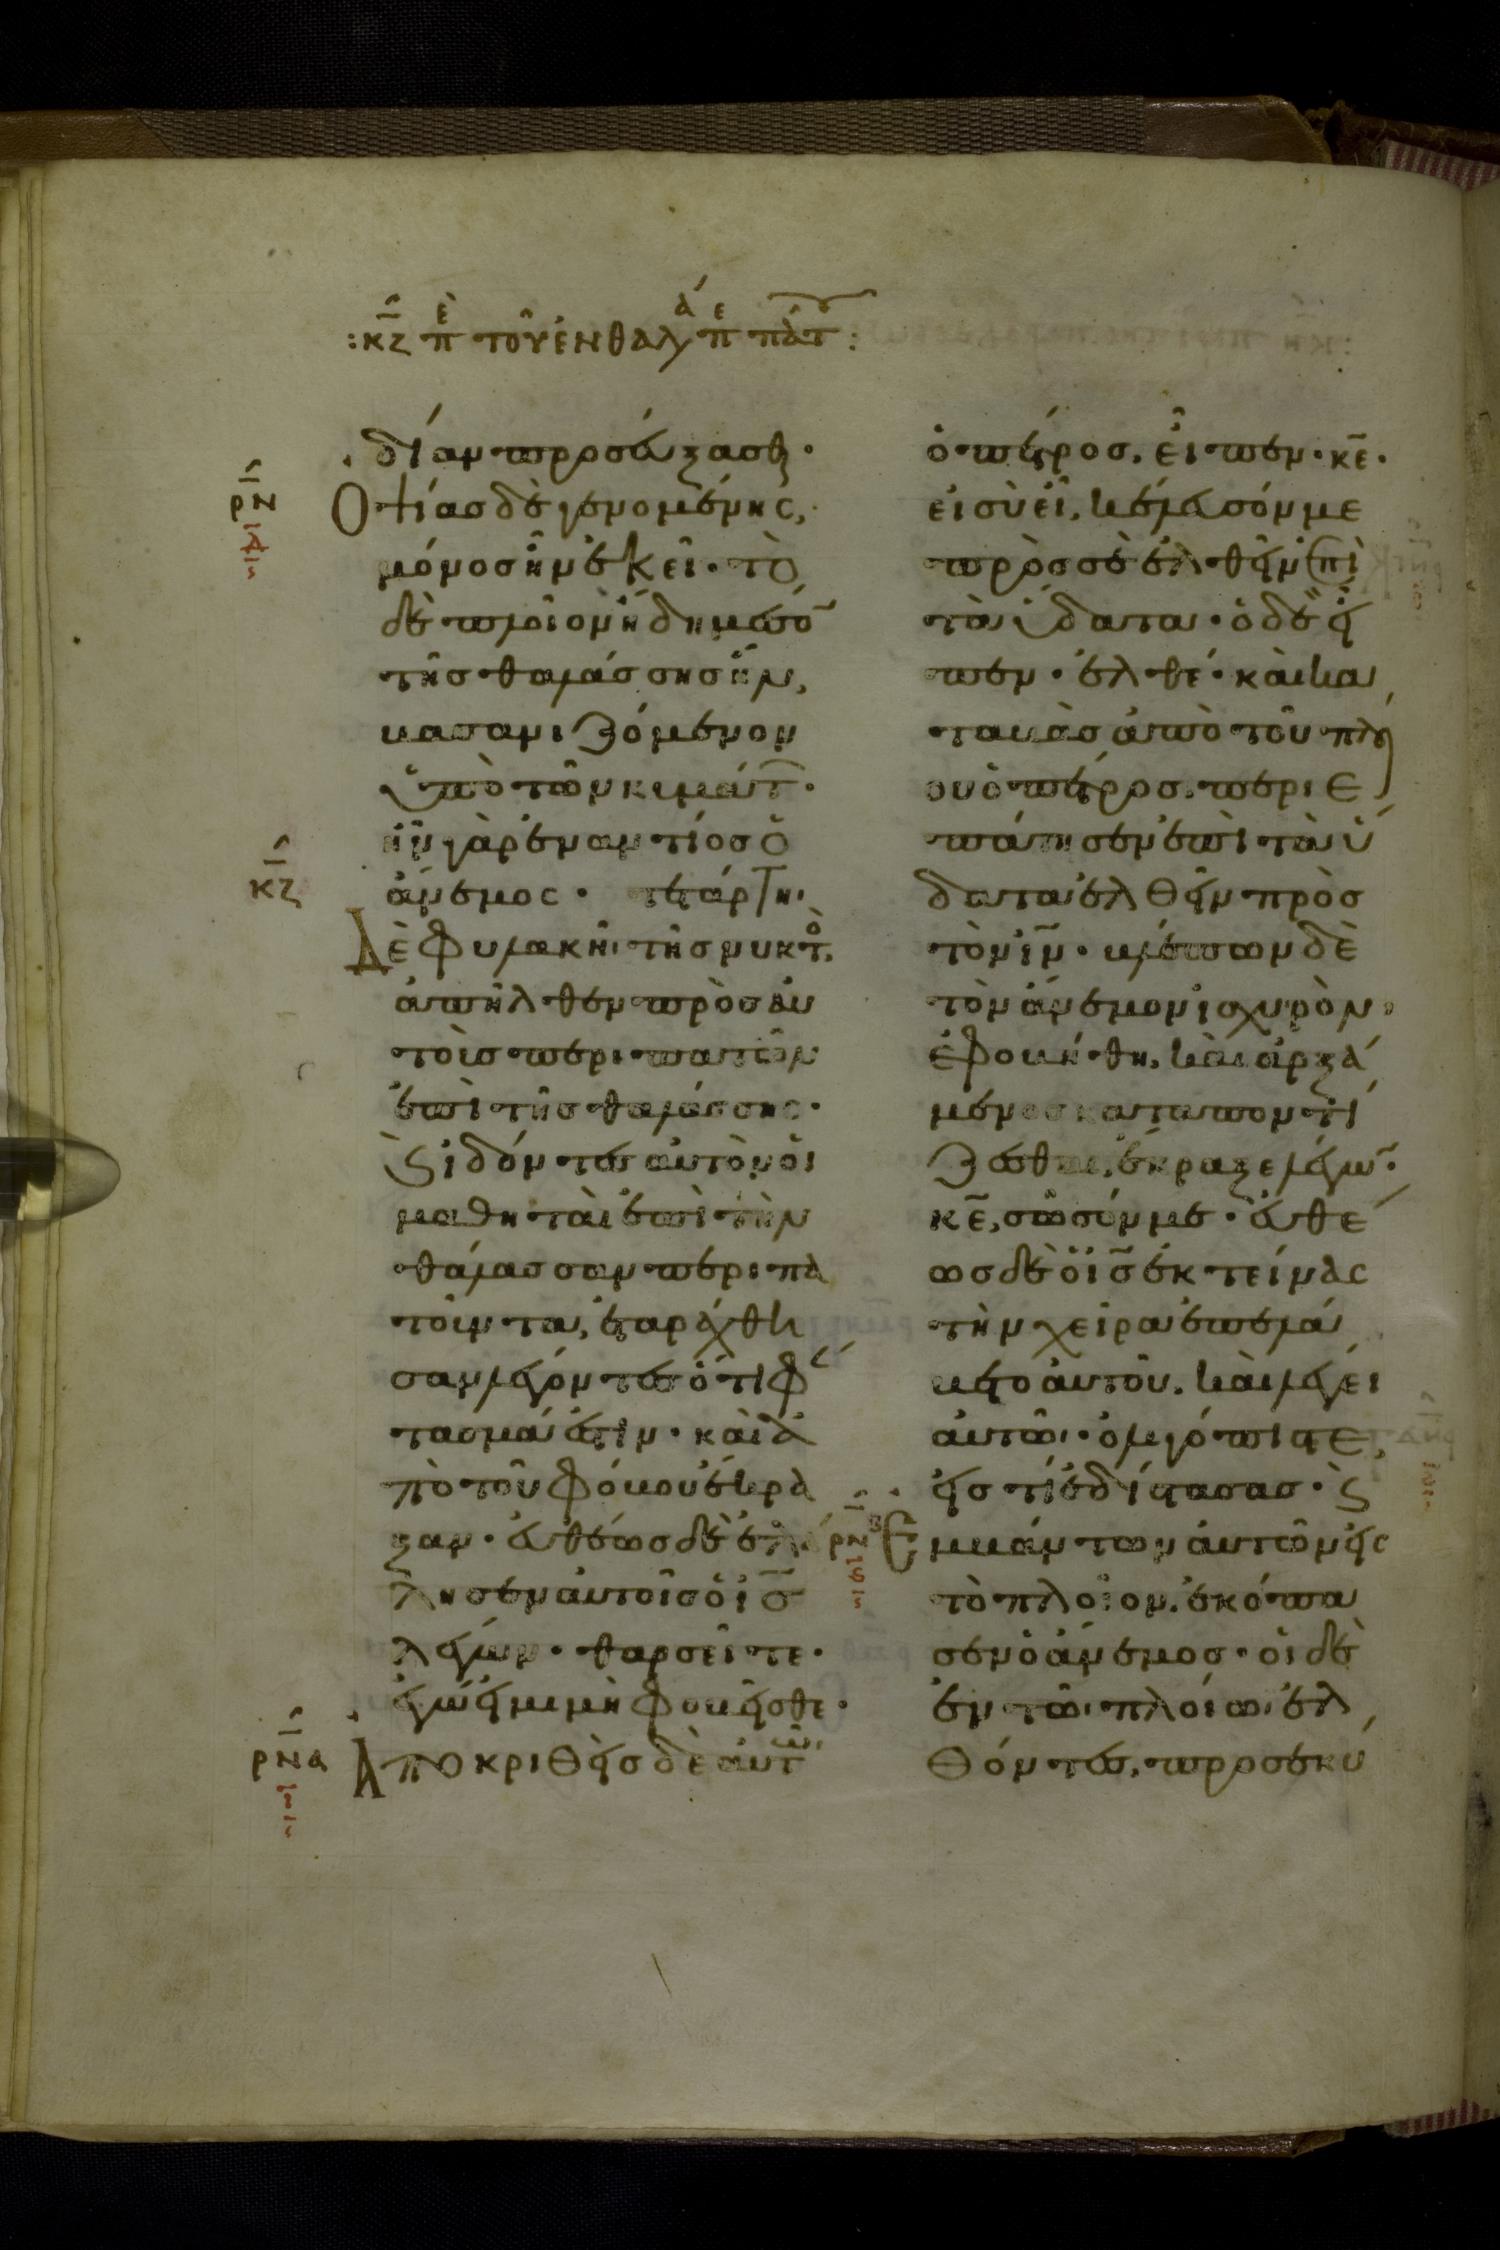 :κζ̄ πὲ τοῦ ἐν θαλά πε πὰτ:
δίαν προσεύξασθ·
ρν̄
Ὀψίας δὲ γενομένης,
μόνος ἦν ἐκεῖ· τὸ
δὲ πλοῖον ἤδη μέσο̄
τῆς θαλάσσης ἦν,
βασανιζόμενον
ὑπὸ τῶν κυμάτ·
ἦν γὰρ ἐναντίος ὁ
κζ̄
ἄνεμος· τετάρτηι
Δὲ φυλακῆι τῆς νυκτὸ,
ἀπῆλθεν πρὸς αὐ
τοὺς περιπατῶν
ἐπὶ τῆς θαλάσσης·
ϛ̀ ἰδόντες αὐτὸν οἱ
μαθηταὶ ἐπὶ τὴν
θάλασσαν περιπα
τοῦντα, ἐταράχθη
σαν λέγοντες ὅτι φά
τασμά ἐστιν· καὶ ἀ
πὸ τοῦ φόβου ἔκρα
ξαν· εὐθέως δὲ ἐλά
λησεν αὐτοῖς ὁ ις̄
λέγων· θαρσεῖτε·
ἐγώ εἰμι μὴ φοβεῖσθε·
ρν̄α
Ἀποκριθεὶς δὲ αὐτῶ
ὁ πέτρος, εἶπεν· κε̄·
εἰ σὺ εἶ, κέλευσόν με
πρὸς σὲ ἐλθεῖν ἐπὶ
τὰ ὕδατα· ὁ δὲ εἶ
πεν· ἐλθέ· καὶ κα
ταβὰς ἀπὸ τοῦ πλοί
ου ὁ πέτρος, περιε
πάτησεν ἐπὶ τὰ ὕ
δατα ἐλθεῖν πρὸς
τὸν ιν̄· βλέπων δὲ
τὸν ἄνεμον ἰσχυρὸν,
ἐφοβήθη, καὶ ἀρξά
μενος καταποντί
ζεσθαι, ἔκραξε λέγω̄·
κε̄, σῶσόν με· εὐθέ
ως δὲ ὁ ις̄ ἐκτείνας
τὴν χεῖρα ἐπελά
βετο αὐτοῦ, καὶ λέγει
αὐτῶι· ὀλιγόπιστε,
εἰς τί ἐδίστασας· ϛ̀
ρν̄β
Ἐμβάντων αὐτῶν εἰς
τὸ πλοῖον, ἐκόπα
σεν ὁ ἄνεμος· οἱ δὲ
ἐν τῶι πλοίωι ἐλ
θόντες, προσεκύ